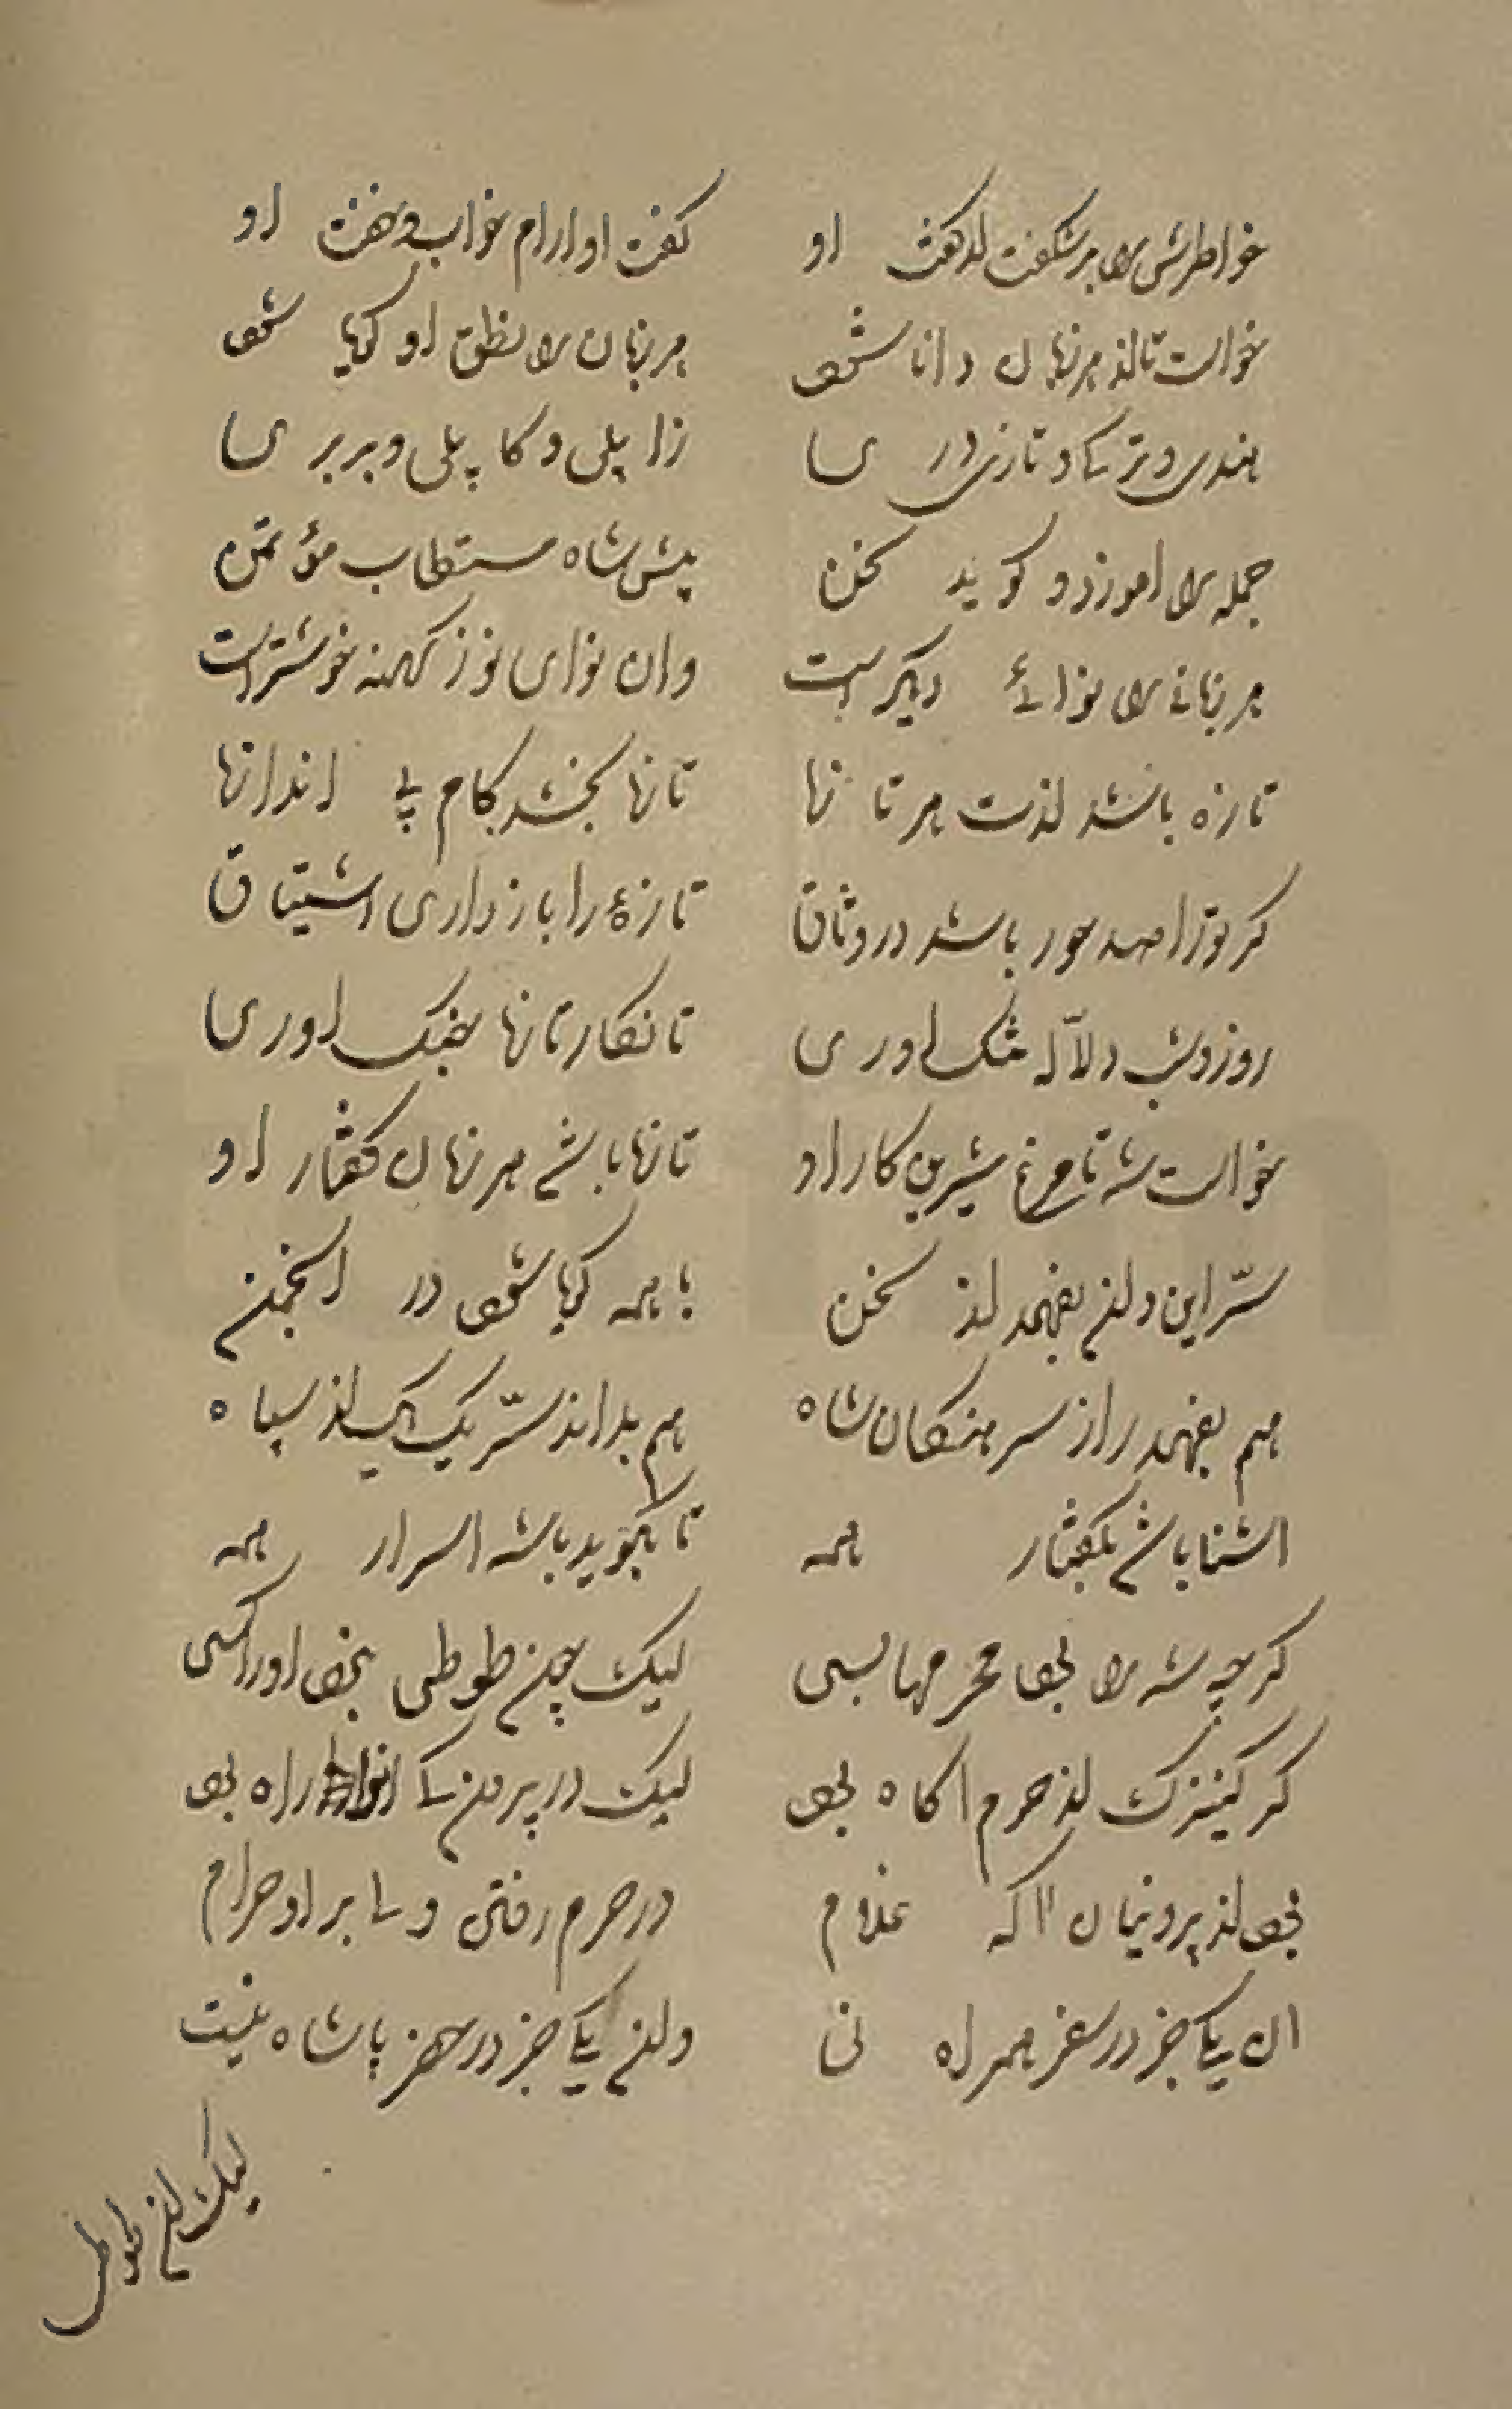 خواطرش را بر شکفت از گفت او
گفت او آرام خواب و خفت او
خواست تا از هر زبان دانا شود
هر زبان را نطق او گویا شود
هندی و ترکی و تازی دری
زابلی و کابلی و بربری
جمله را آموزد و گوید سخن
پیش شاه مستطاب مؤتمن
هر زبانی را نوائی دیگر است
وان نوای نو ز کهنه خوشتر است
تازه باشد لذت هر تا زها
تا زها بخشد بکام بی اندازها
گر تو را صد حور باشد در وثاق
تازهٔ را باز داری اشتیاق
روز و شب دلاله مشک آوری
تا نگار تازها بچنگ آوری
خواست شه تا مرغ شیرین کار او
تازها باشد هر زمان گفتار او
سرّ این و آن بفهمد از سخن
با همه گویا شود در انجمن
هم بفهمد راز سرهنگان شاه
هم بداند سرّ یک یک از سپاه
آشنا باشد بگفتار همه
تا بگوید با شه اسرار همه
گرچه شه را بود محرمها بسی
لیک چون طوطی نبود او را کسی
گر کنیزک از حرم آگاه بود
لیک در بیرون کی را راه بود
بود از بیرونیان آگه غلام
در حرم رفتن ولی بر او حرام
آن یکی جز در سفر همراه نی
وان یکی جز در حضر با شاه نیست
لیک آن طوطی